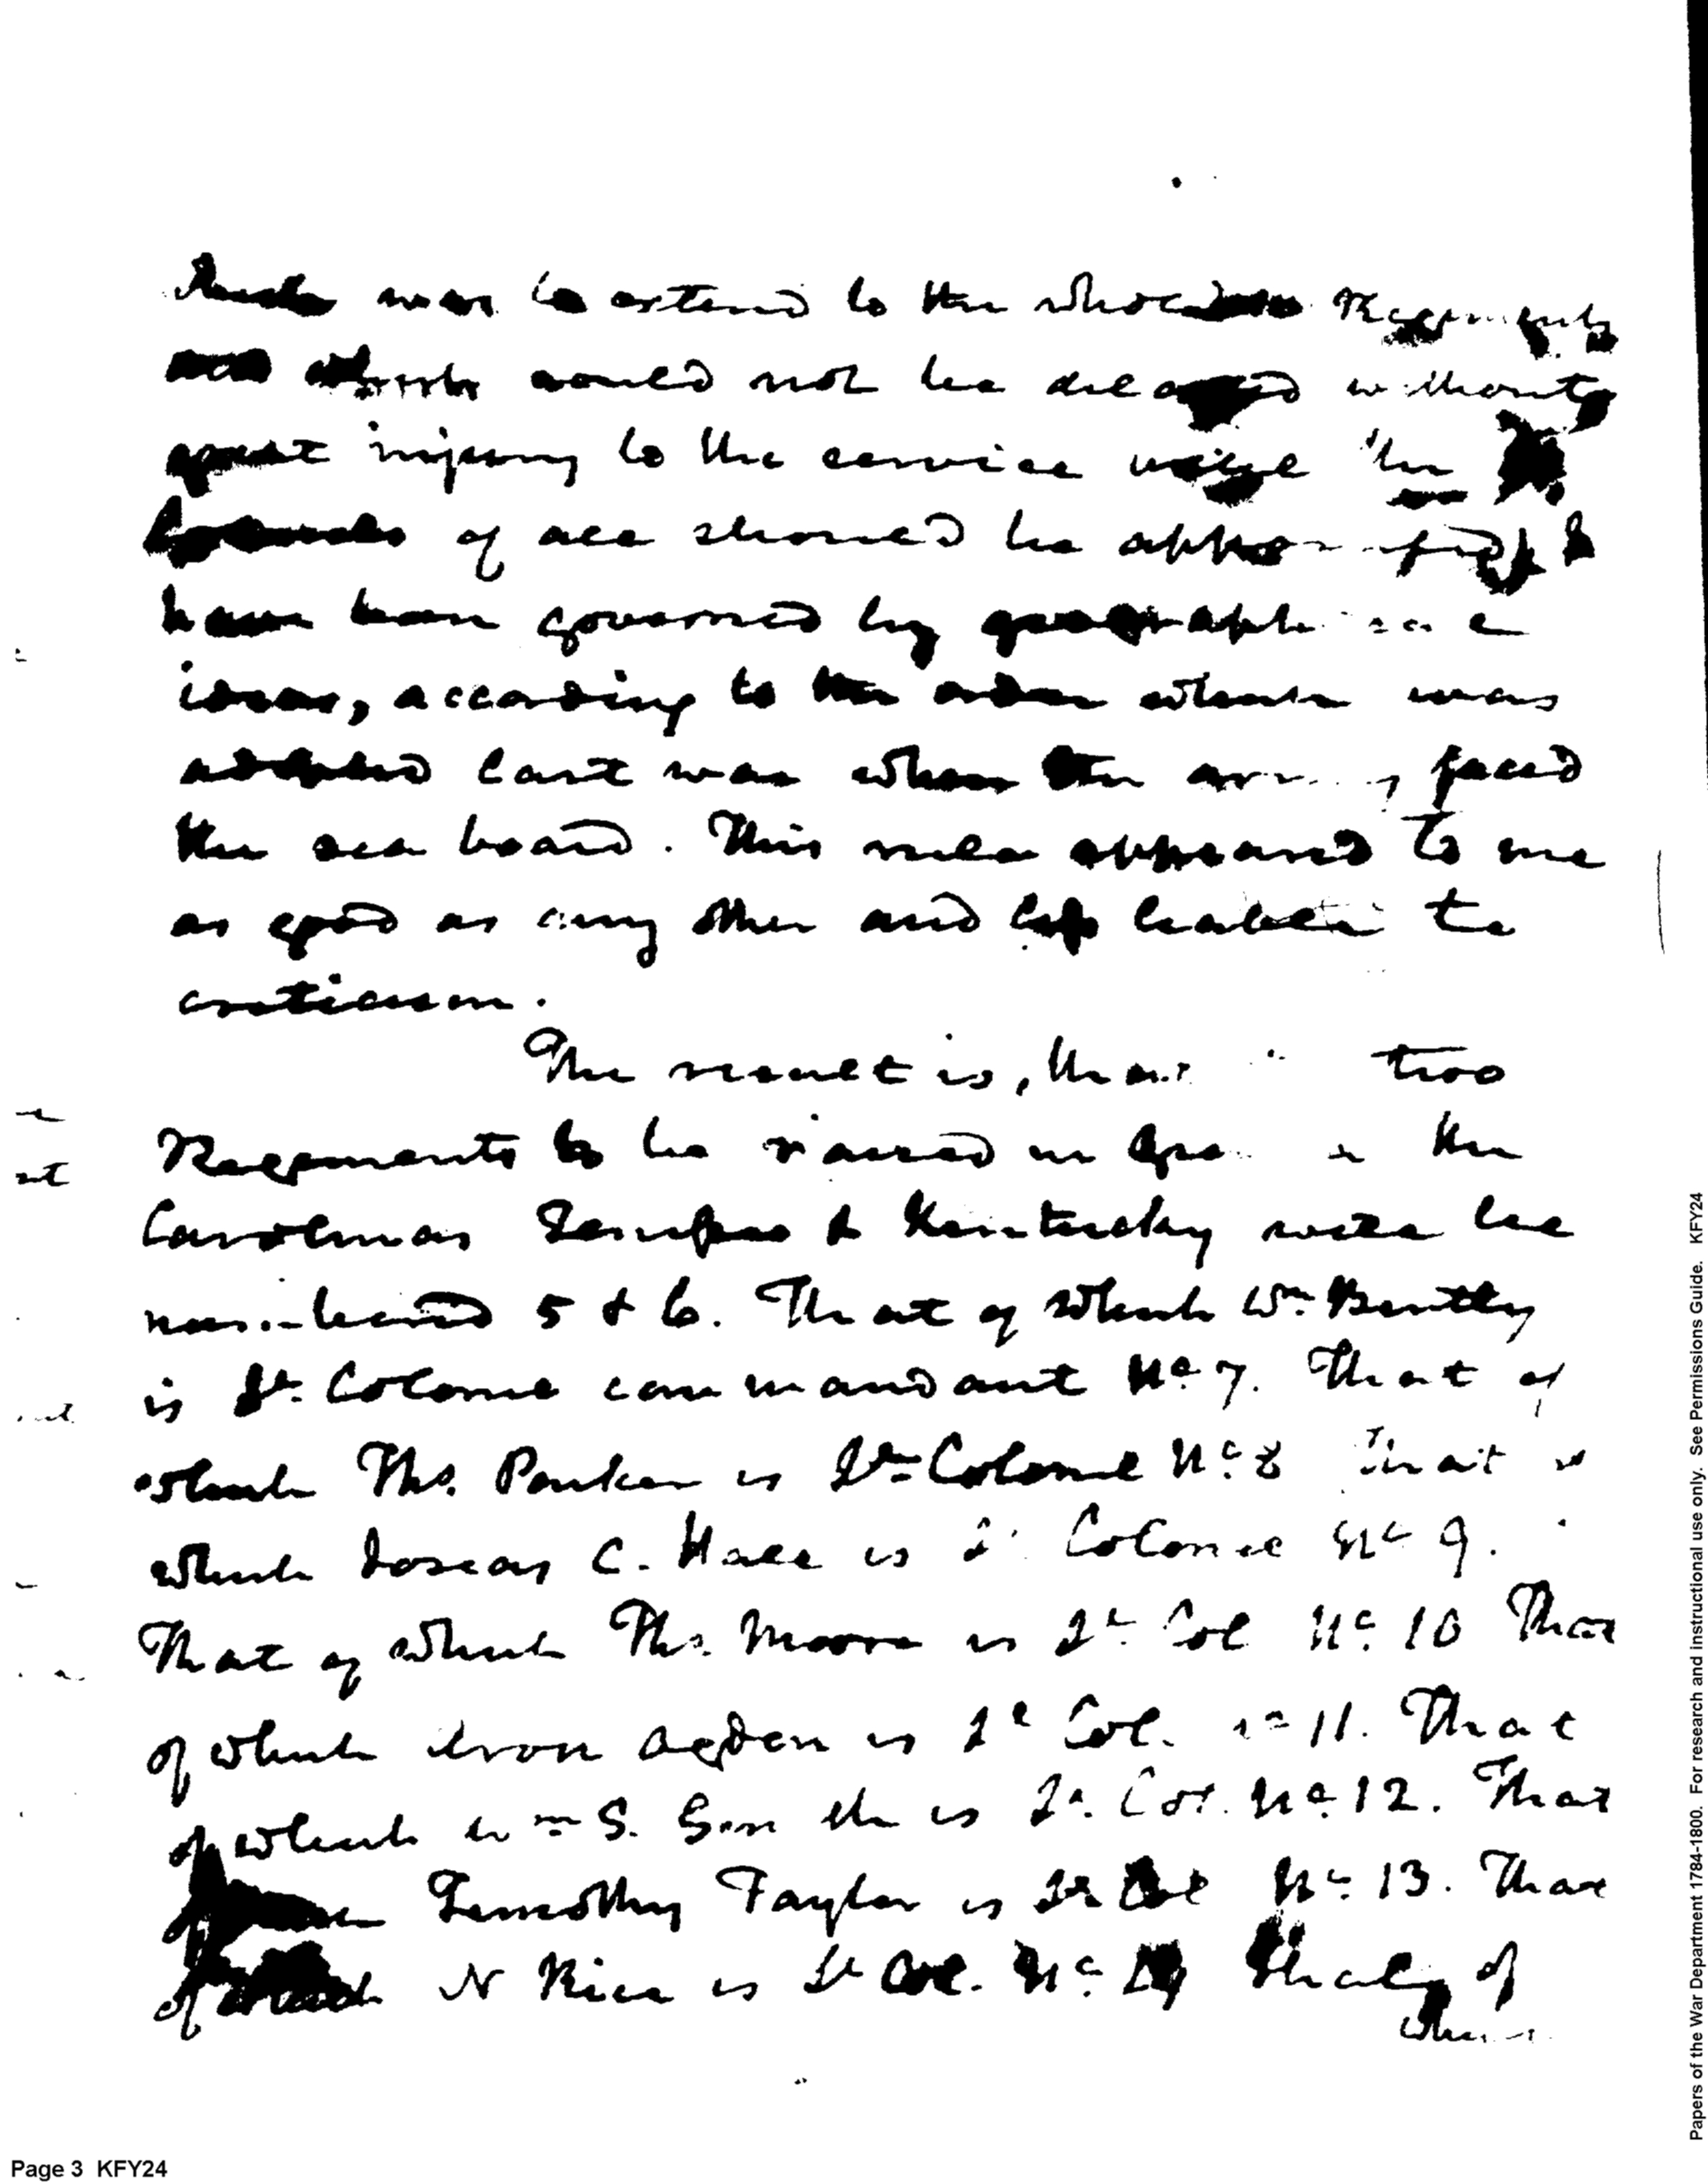 which was to extend to the whole Regiments
and which could not be delayed without
great injury to the service untill the
Colonels of all should be appointed, I
have been governed by geographical
ideas, according to the order which was
adopted last war when the army faced
the sea board. This rule appeared to me
as good as any other and less liable to
criticism.
The result is, that two
Regiments to be raised in the
Carolinas Tenessee & Kentucky will be
numbered 5 & 6. That of which Wm Bentley
is Lt. Colonel commandant No. 7. That of
which Ths. Parker is Lt. Colonel No. 8 That of
which Josias C. Hall is Lt Colonel No 9.
That of which Ths. Moore is Lt. Col No. 10 That
of which Aron Ogden is Lt Col. No 11. That
of which Wm S. Smith is Lt. Col. No. 12. That
of which Timothy Taylor is Lt Col No. 13. That
of which N Rice is Lt Col. No. 14 That of
which
Page 3 KFY24
Papers of the War Department 1784-1800. For research and instructional use only. See Permissions Guide. KFY24